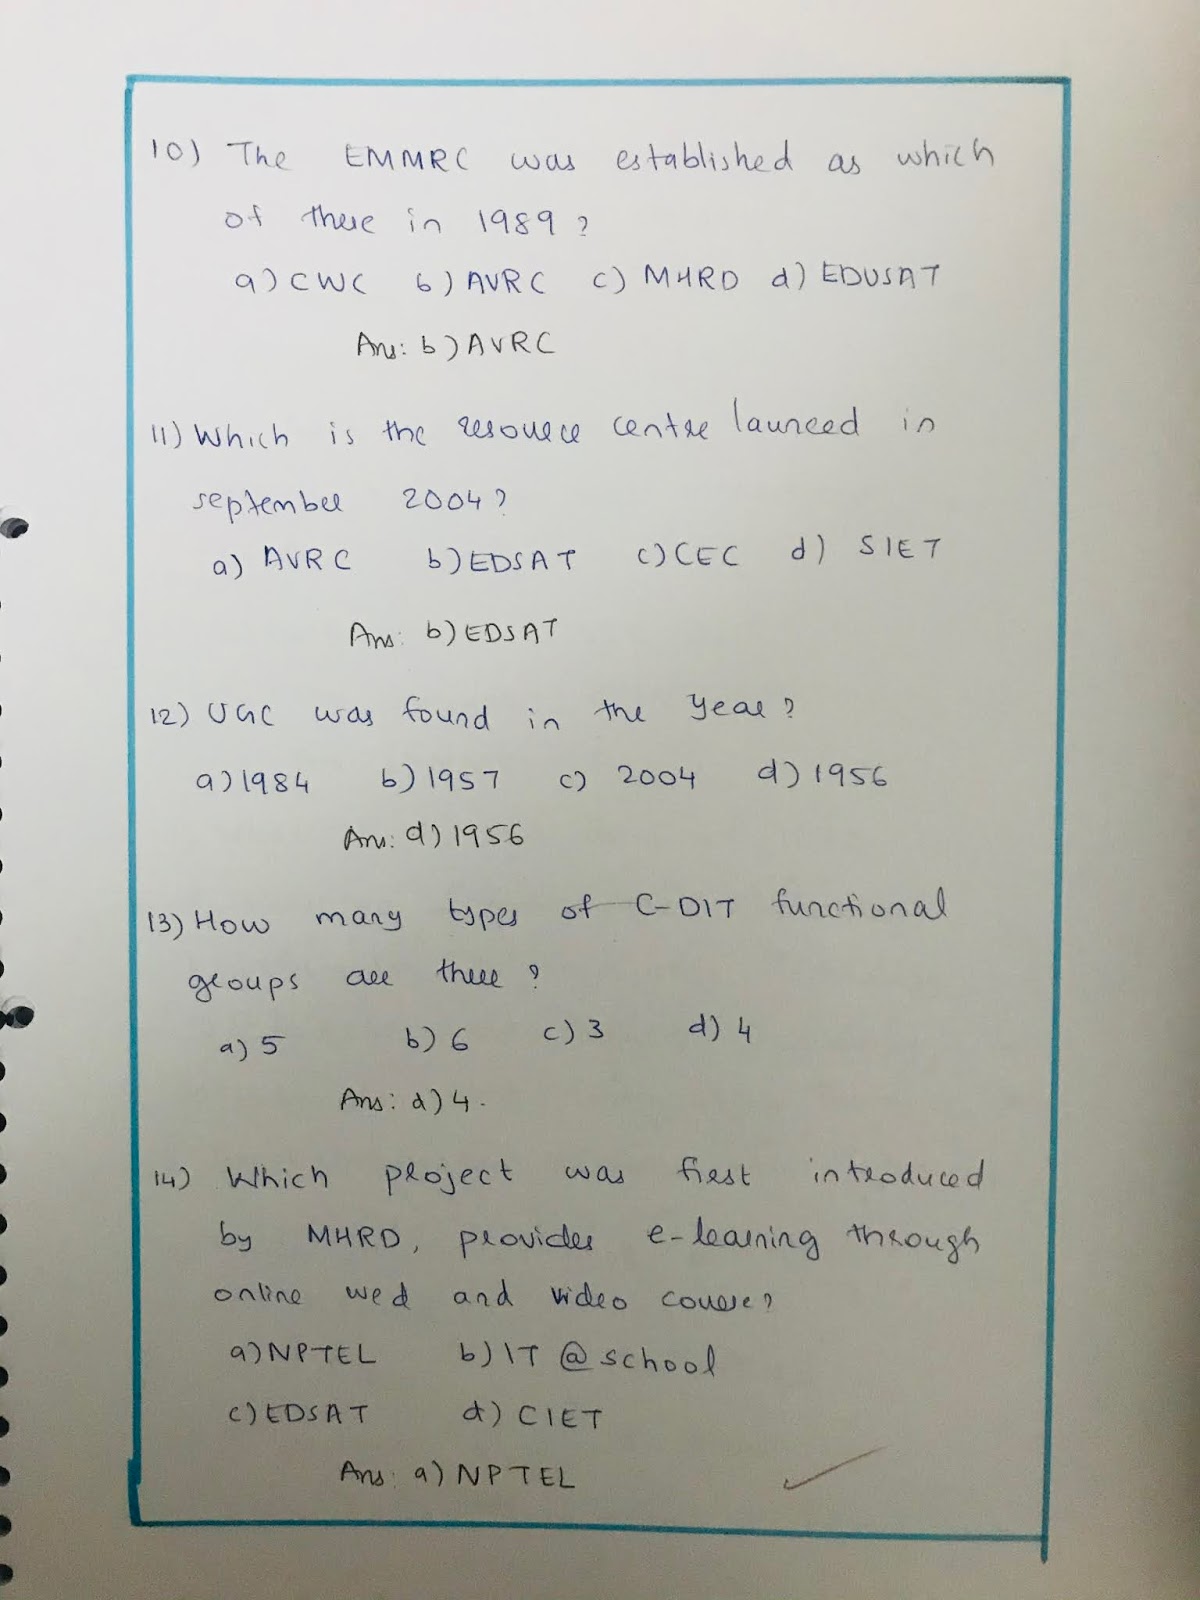 10) The EMMRC was established as which
of these in 1989?
a) CWC b) AVRC c) MHRD d) EDUSAT
Ans: b) AVRC
11) Which is the resource centre launced in
september 2004?
a) AVRC b) EDSAT c) CEC d) SIET
Ans: b) EDSAT
12) UGC was found in the year?
a) 1984 b) 1957 c) 2004 d) 1956
Ans: d) 1956
13) How many types of C-DIT functional
groups are there?
a) 5 b) 6 c) 3 d) 4
Ans: d) 4.
14) Which project was first introduced
by MHRD, provides e-learning through
online wed and video course?
a) NPTEL b) IT @ school
c) EDSAT d) CIET
Ans: a) NPTEL